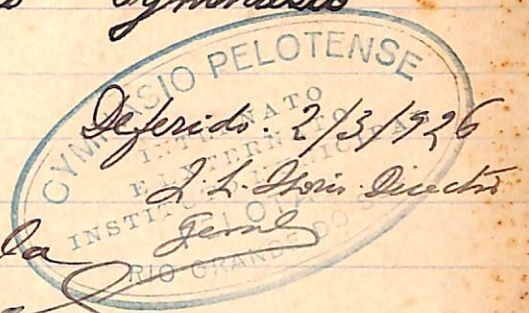 Gymnasio
GYMNASIO PELOTENSE
INTERNATO
E EXTERNATO
INSTITUTO
PELOTAS
RIO GRANDE DO SUL
Deferido. 2/3/926
Director
Geral
la